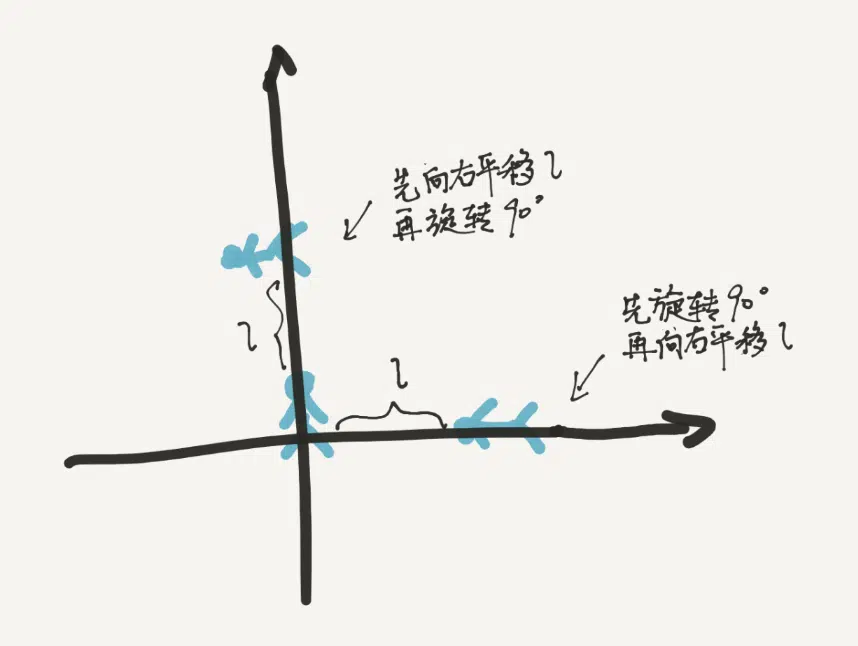 先向右平移 l
再旋转 90°
先旋转 90°
再向右平移 l
l
l